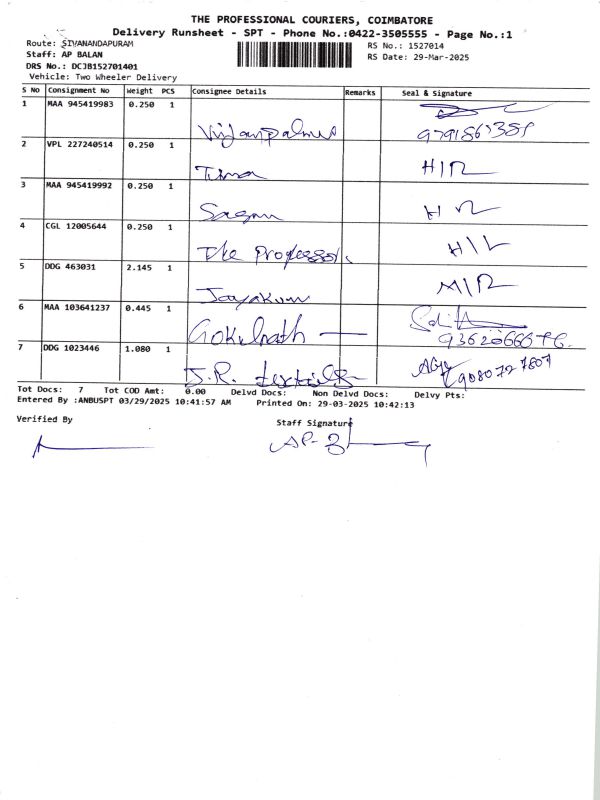 THE PROFESSIONAL COURIERS, COIMBATORE
Delivery Runsheet - SPT - Phone No.:0422-3505555 - Page No.:1
Route: SIVANANDAPURAM
RS No.: 1527014
Staff: AP BALAN
RS Date: 29-Mar-2025
DRS No.: DCJB152701401
Vehicle: Two Wheeler Delivery
S No Consignment No Weight PCS Consignee Details Remarks Seal & Signature
1 MAA 945419983 0.250 1
2 VPL 227240514 0.250 1
3 MAA 945419992 0.250 1
4 CGL 12005644 0.250 1 The
5 DDG 463031 2.145 1 Jayakum
6 MAA 103641237 0.445 1 Gokulnath
7 DDG 1023446 1.080 1 J.R. textiles
Tot Docs: 7 Tot COD Amt: 0.00 Delvd Docs: Non Delvd Docs: Delvy Pts:
Entered By :ANBUSPT 03/29/2025 10:41:57 AM Printed On: 29-03-2025 10:42:13
Verified By
Staff Signature